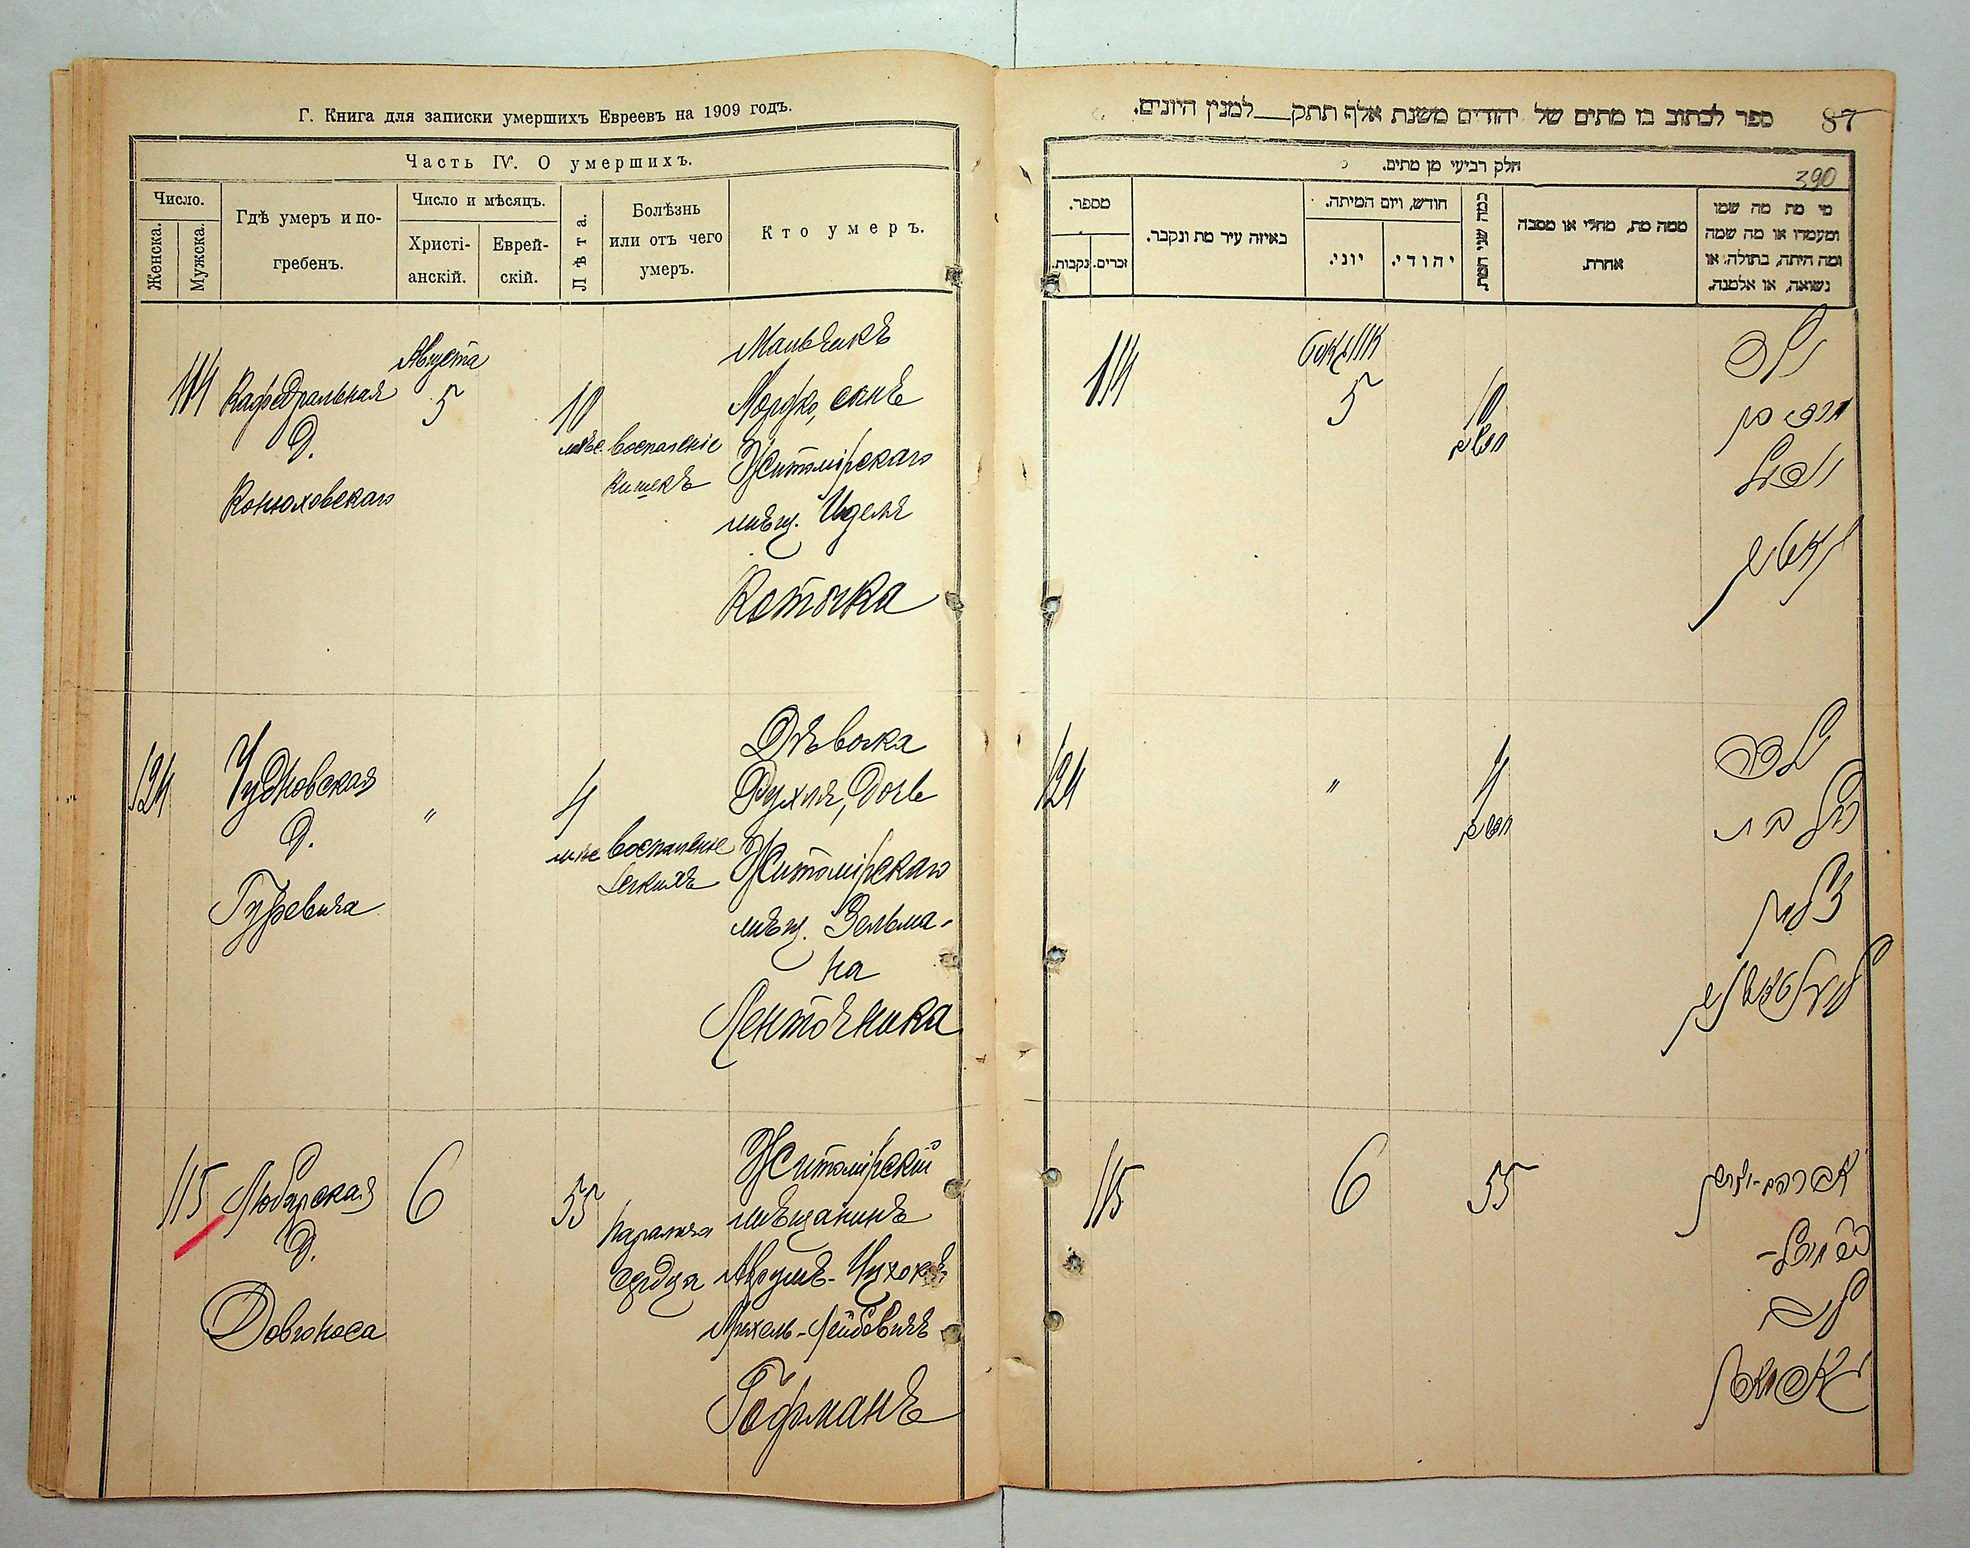 Г. Книга для записки умершихъ Евреевъ на 1909 годъ.
Часть IV. О умершихъ.
Число.
Женска.
Мужска.
Гдѣ умеръ и по-
гребенъ.
Число и мѣсяцъ.
Христі-
анскій.
Еврей-
скій.
Лѣта.
Болѣзнь
или отъ чего
умеръ.
Кто умеръ.
114
Кафедральная
д.
Конюховскаго
Августа
5
10
мѣс.
Воспаленіе
кишекъ
Мальчикъ
сынъ
Житомірскаго
мѣщ. Иделя
Коточка
124
Чудновская
д.
Гуревича
"
4
мѣс
Воспаленіе
легкихъ
Дѣвочка
Рухля, дочь
Житомірскаго
мѣщ. Зельма-
на
Ленточника
115
Любарская
д.
Довгоноса
6
55
Параличъ
сердца
Житомірскій
мѣщанинъ
Михель-Лейбовичъ
Гофманъ
ספר לכתוב בו מתים של יהודים משנת אלף תתק למנין היונים.
87
חלק רביעי מן מתים.
390
מספר.
זכרים.
נקבות.
באיזה עיר מת ונקבר.
חודש, ויום המיתה.
יוני.
יהודי.
כמה שני המת.
ממה מת, מחלי או מסבה
אחרת.
מי מת מה שמו
ומעמדו או מה שמה
ומה היתה, בתולה, או
נשואה, או אלמנה.
114
אווגוסט
5
10
חדשים
ילד
124
"
4
חדשים
ילדה
רחל בת
זלמן
115
6
55
לייב
האפמאן